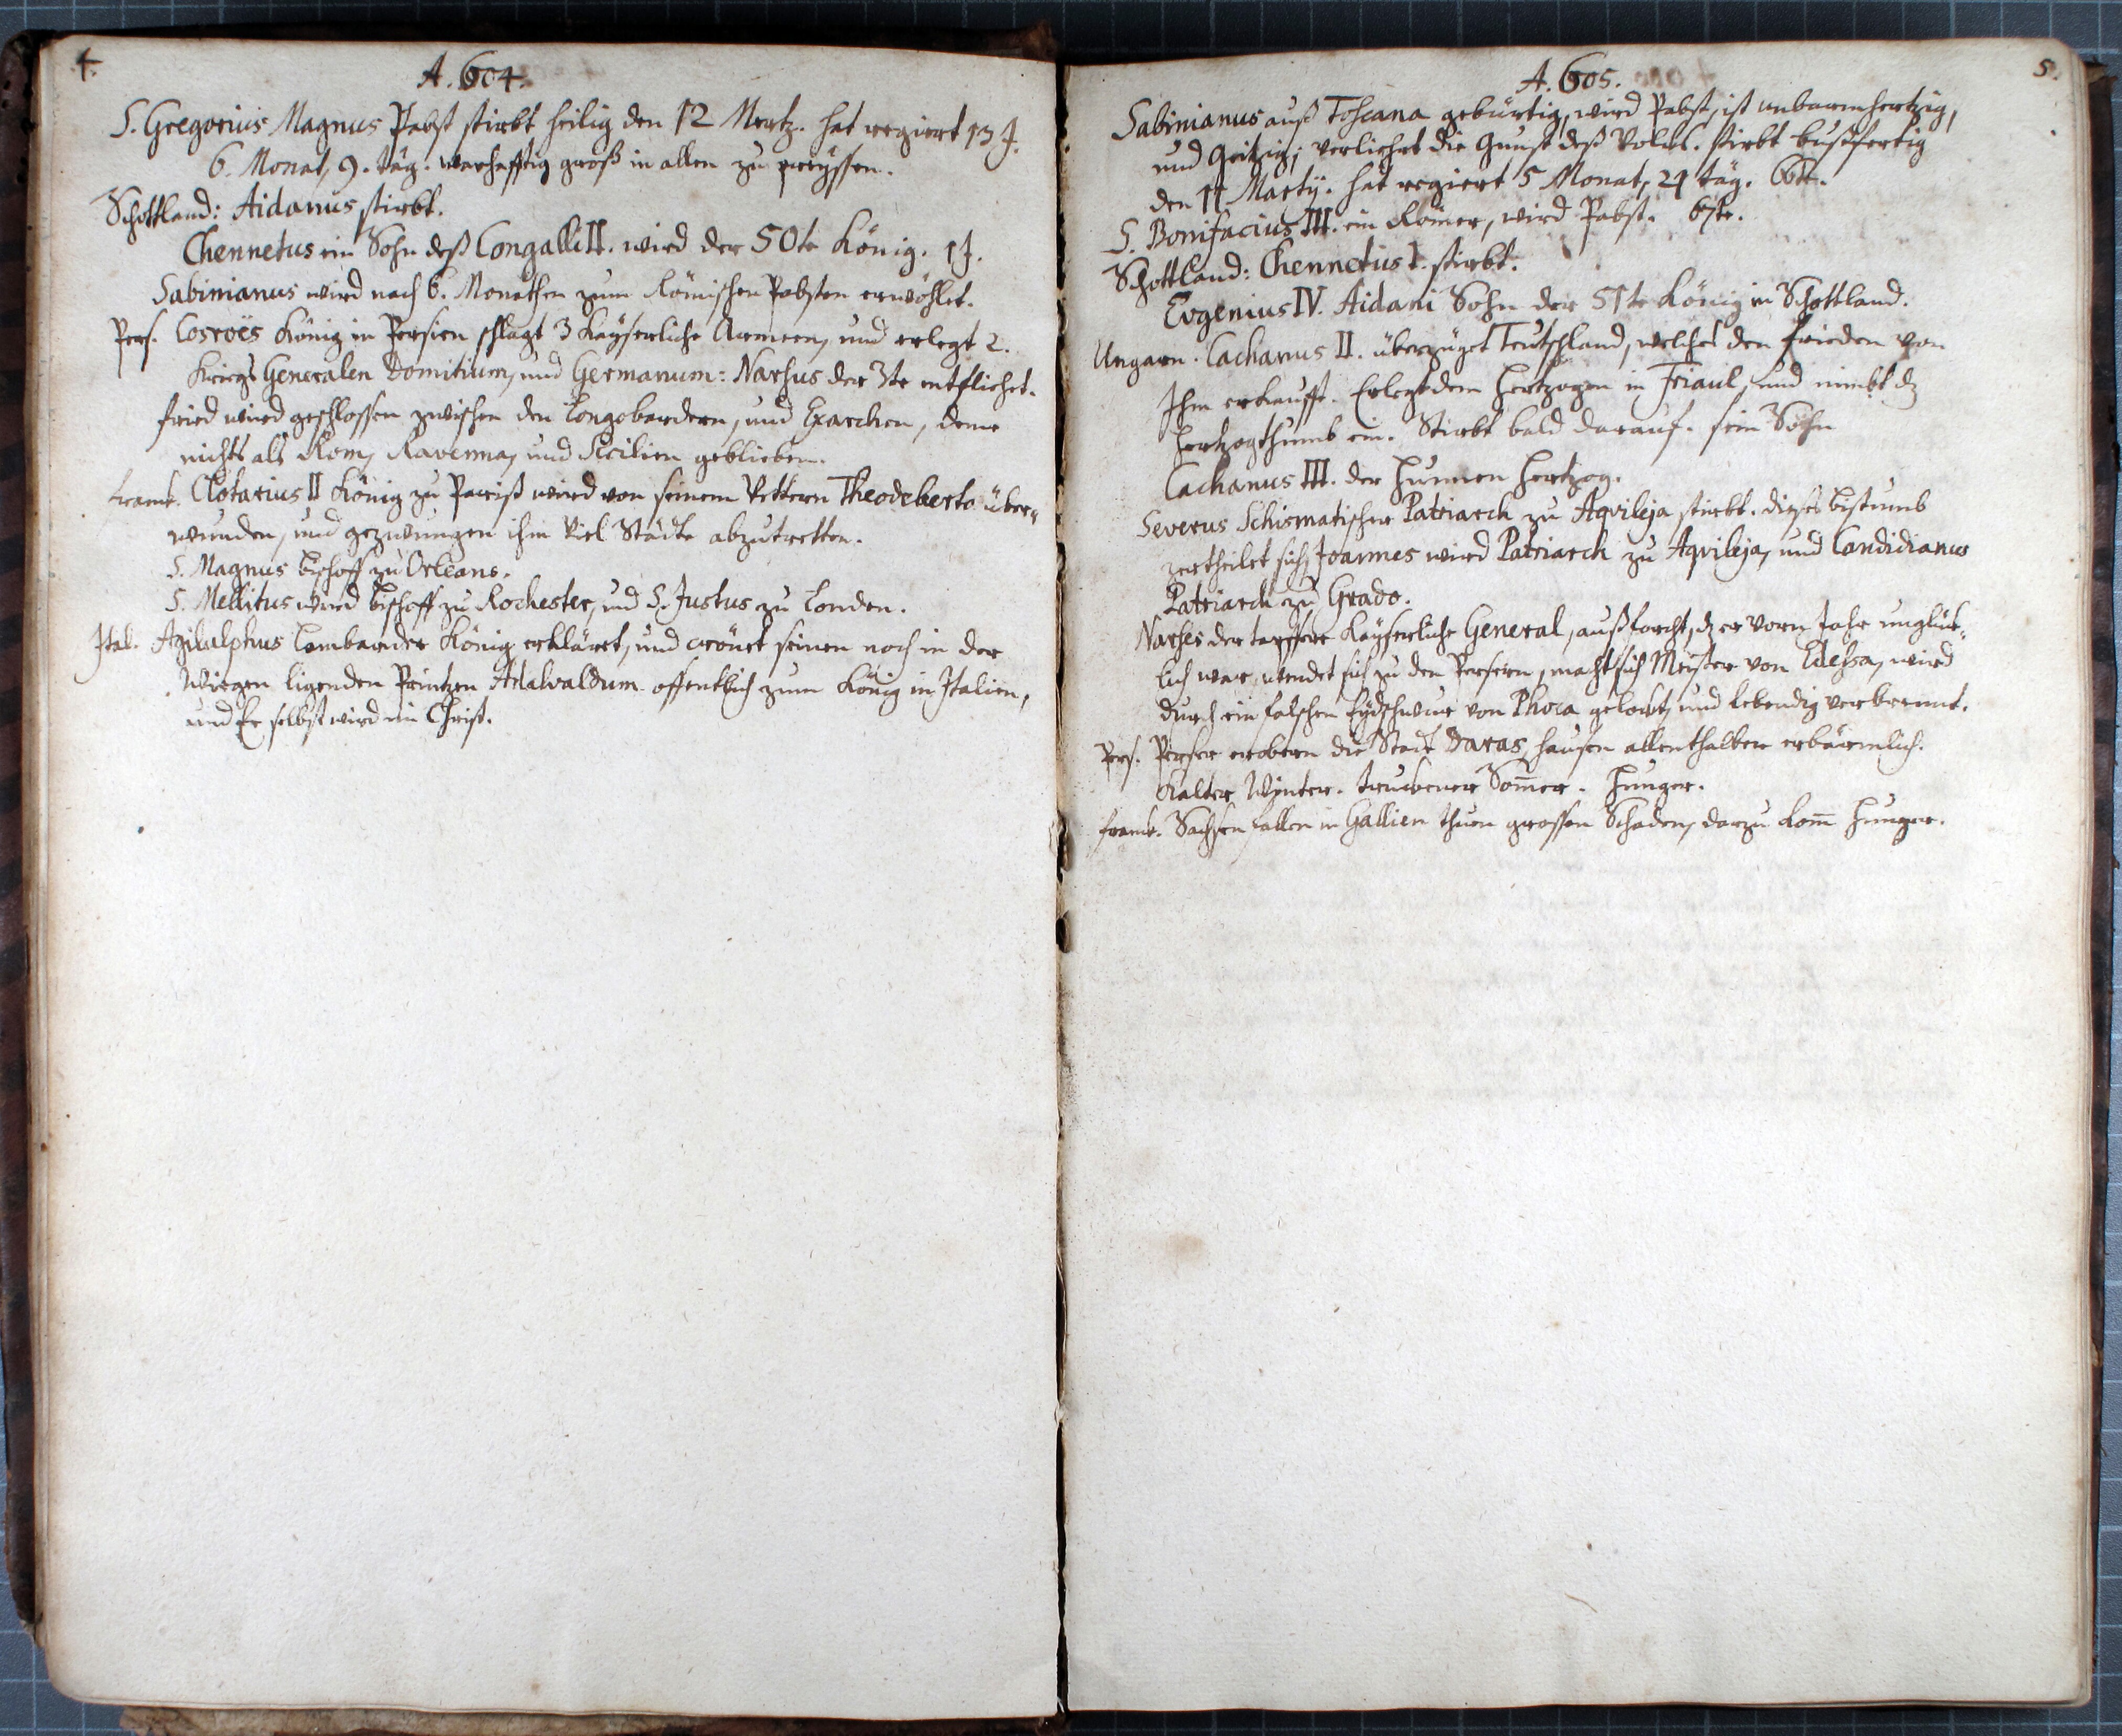 4.
A. 604.
S. Gregorius Magnus Pabst stirbt heilig den 12 Mertz. hat regiert 13 J.
6. Monat, 9. täg. warhafftig groß in allen zu preyssen.
Schottland: Aidanus stirbt.
Chennetus ein Sohn deß Congalli II. wird der 50te König. 1 J.
Sabinianus wird nach 6. Monathen zum Römischen Pabsten erwöhlet.
Pers. Cosroës König in Persien schlagt 3 Kayserliche Armeen, und erlegt 2.
Kriegs Generalen Domitium, und Germanum: Narsus der 3te entfliehet.
frid wird geschlossen zwischen den Longobardern, und Exarchen, deme
nichts als Rom, Ravenna, und Sicilien geblieben.
frank. Clotarius II König zu Pariß wird von seinem Vettern Theodeberto über„
wunden, und gezwungen ihm viel Städte abzutretten.
S. Magnus Bischoff zu Orleans.
S. Mellitus wird Bischoff zu Rochester, und S. Justus zu Londen.
Ital. Agilulphus Lombarder König erklärt, und crönet seinen noch in der
Wiegen ligenden Printzen Adalvaldum offentlich zum König in Italien,
und Er selbst wird ein Christ.
5.
A. 605.
Sabinianus auß Toscana gebürtig, wird Pabst, ist unbarmhertzig,
und Geitzig, verliehrt die Gunst deß Volcks. stirbt bußfertig
den 11 Martÿ. hat regiert 5 Monat, 21 täg. 66te.
S. Bonifacius III. ein Römer, wird Pabst. 67te.
Schottland: Chennetus I. stirbt.
Evgenius IV. Aidani Sohn der 51te König in Schottland.
Ungarn. Cachanus II. überzüget Teutschland, welches den frieden von
Ihm erkaufft. Erlegt den Hertzogen in Friaul, und nimbt dz
Hertzogthumb ein. Stirbt bald darauf. sein Sohn
Cachanus III. der Hunnen Hertzog.
Severus Schismatischer Patriarch zu Aqvileja stirbt. dises Bistumb
zertheilet sich, Joannes wird Patriarch zu Aqvileja, und Candidianus
Patriarch zu Grado.
Narses der tapffere Kayserliche General, auß forcht, dz er vorm Jahr unglük„
lich war, wendet sich zu den Persern, macht sich Meister von Edessa, wird
durch ein falschen Eydschwur von Phoca gelockt, und lebendig verbrennt.
Pers. Perser erobern die Statt Daras, hausen allenthalben erbärmlich.
Kalter Wynter. truckener Som̄er. Hunger.
frank. Sachsen fallen in Gallien thuen grossen Schaden, darzu kom̄ Hunger.